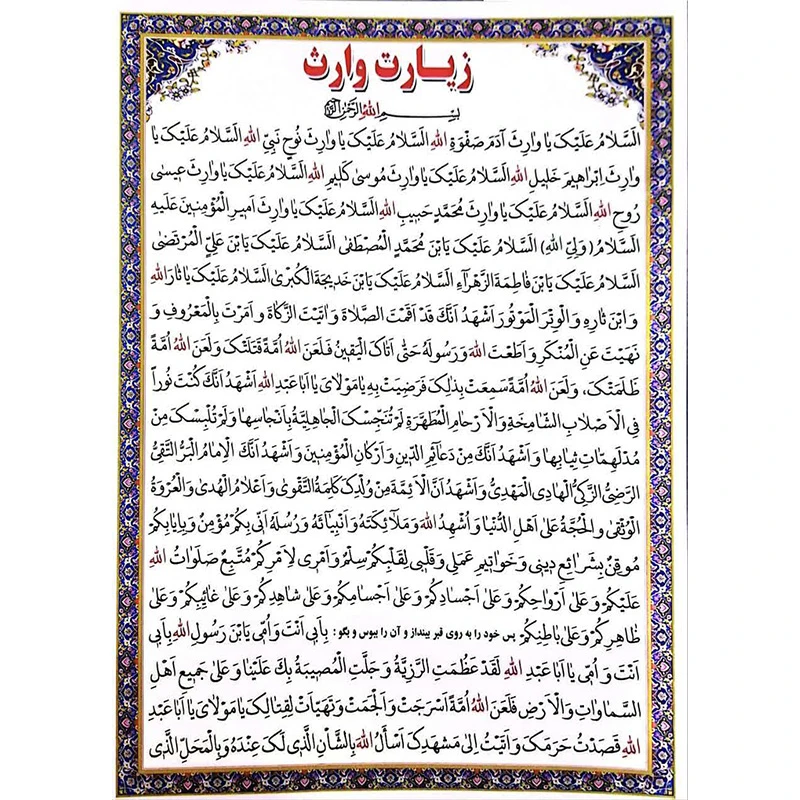 زیارت وارث
بِسْمِ اللهِ الرَّحْمٰنِ الرَّحیمِ
اَلسَّلامُ عَلَیْکَ یا وارِثَ آدَمَ صَفْوَةِ اللهِ اَلسَّلامُ عَلَیْکَ یا وارِثَ نُوحٍ نَبِیِّ اللهِ اَلسَّلامُ عَلَیْکَ یا
وارِثَ اِبْراهیمَ خَلیلِ اللهِ اَلسَّلامُ عَلَیْکَ یا وارِثَ مُوسیٰ کَلیمِ اللهِ اَلسَّلامُ عَلَیْکَ یا وارِثَ عیسیٰ
رُوحِ اللهِ اَلسَّلامُ عَلَیْکَ یا وارِثَ مُحَمَّدٍ حَبیبِ اللهِ اَلسَّلامُ عَلَیْکَ یا وارِثَ اَمیرِ الْمُؤْمِنینَ عَلَیْهِ
السَّلامُ (وَلِیِّ اللهِ) اَلسَّلامُ عَلَیْکَ یَابْنَ مُحَمَّدٍ الْمُصْطَفیٰ اَلسَّلامُ عَلَیْکَ یَابْنَ عَلِیٍّ الْمُرْتَضیٰ
اَلسَّلامُ عَلَیْکَ یَابْنَ فاطِمَةَ الزَّهْرآءِ اَلسَّلامُ عَلَیْکَ یَابْنَ خَدیجَةَ الْکُبْریٰ اَلسَّلامُ عَلَیْکَ یا ثارَ اللهِ
وَابْنَ ثارِهِ وَالْوِتْرَ الْمَوْتُورَ اَشْهَدُ اَنَّکَ قَدْ اَقَمْتَ الصَّلاةَ وَاٰتَیْتَ الزَّکاةَ وَ اَمَرْتَ بِالْمَعْرُوفِ وَ
نَهَیْتَ عَنِ الْمُنْکَرِ وَ اَطَعْتَ اللهَ وَ رَسُولَهُ حَتّیٰ اَتاکَ الْیَقینُ فَلَعَنَ اللهُ اُمَّةً قَتَلَتْکَ وَ لَعَنَ اللهُ اُمَّةً
ظَلَمَتْکَ، وَ لَعَنَ اللهُ اُمَّةً سَمِعَتْ بِذٰلِکَ فَرَضِیَتْ بِهِ یا مَوْلایَ یا اَبا عَبْدِ اللهِ اَشْهَدُ اَنَّکَ کُنْتَ نُوراً
فِی الْاَصْلابِ الشّامِخَةِ وَالْاَرْحامِ الْمُطَهَّرَةِ لَمْ تُنَجِّسْکَ الْجاهِلِیَّةُ بِاَنْجاسِها وَ لَمْ تُلْبِسْکَ مِنْ
مُدْلَهِمّاتِ ثِیابِها وَ اَشْهَدُ اَنَّکَ مِنْ دَعآئِمِ الدّینِ وَ اَرْکانِ الْمُؤْمِنینَ وَ اَشْهَدُ اَنَّکَ الْاِمامُ الْبَرُّ التَّقِیُّ
الرَّضِیُّ الزَّکِیُّ الْهادِی الْمَهْدِیُّ وَ اَشْهَدُ اَنَّ الْاَئِمَّةَ مِنْ وُلْدِکَ کَلِمَةُ التَّقْویٰ وَ اَعْلامُ الْهُدیٰ وَ الْعُرْوَةُ
الْوُثْقیٰ وَ الْحُجَّةُ عَلیٰ اَهْلِ الدُّنْیا وَ اُشْهِدُ اللهَ وَ مَلٰائِکَتَهُ وَ اَنْبِیٰائَهُ وَ رُسُلَهُ اَنّی بِکُمْ مُؤْمِنٌ وَ بِاِیٰابِکُمْ
مُوقِنٌ بِشَرٰائِعِ دینی وَ خَوٰاتیمِ عَمَلی وَ قَلْبی لِقَلْبِکُمْ سِلْمٌ وَ اَمْری لِاَمْرِکُمْ مُتَّبِعٌ صَلَوٰاتُ اللهِ
عَلَیْکُمْ وَ عَلیٰ اَرْوٰاحِکُمْ وَ عَلیٰ اَجْسادِکُمْ وَ عَلیٰ اَجْسامِکُمْ وَ عَلیٰ شاهِدِکُمْ وَ عَلیٰ غائِبِکُمْ وَ عَلیٰ
ظاهِرِکُمْ وَ عَلیٰ باطِنِکُمْ پس خود را به روی قبر بینداز و آن را ببوس و بگو : بِاَبی اَنْتَ وَ اُمّی یَابْنَ رَسُولِ اللهِ بِاَبی
اَنْتَ وَ اُمّی یا اَبا عَبْدِ اللهِ لَقَدْ عَظُمَتِ الرَّزِیَّةُ وَ جَلَّتِ الْمُصیبَةُ بِکَ عَلَیْنا وَ عَلیٰ جَمیعِ اَهْلِ
السَّماوٰاتِ وَالْاَرْضِ فَلَعَنَ اللهُ اُمَّةً اَسْرَجَتْ وَ اَلْجَمَتْ وَ تَهَیَّاَتْ لِقِتالِکَ یا مَوْلایَ یا اَبا عَبْدِ
اللهِ قَصَدْتُ حَرَمَکَ وَ اَتَیْتُ اِلیٰ مَشْهَدِکَ اَسْأَلُ اللهَ بِالشَّاْنِ الَّذی لَکَ عِنْدَهُ وَ بِالْمَحَلِّ الَّذی